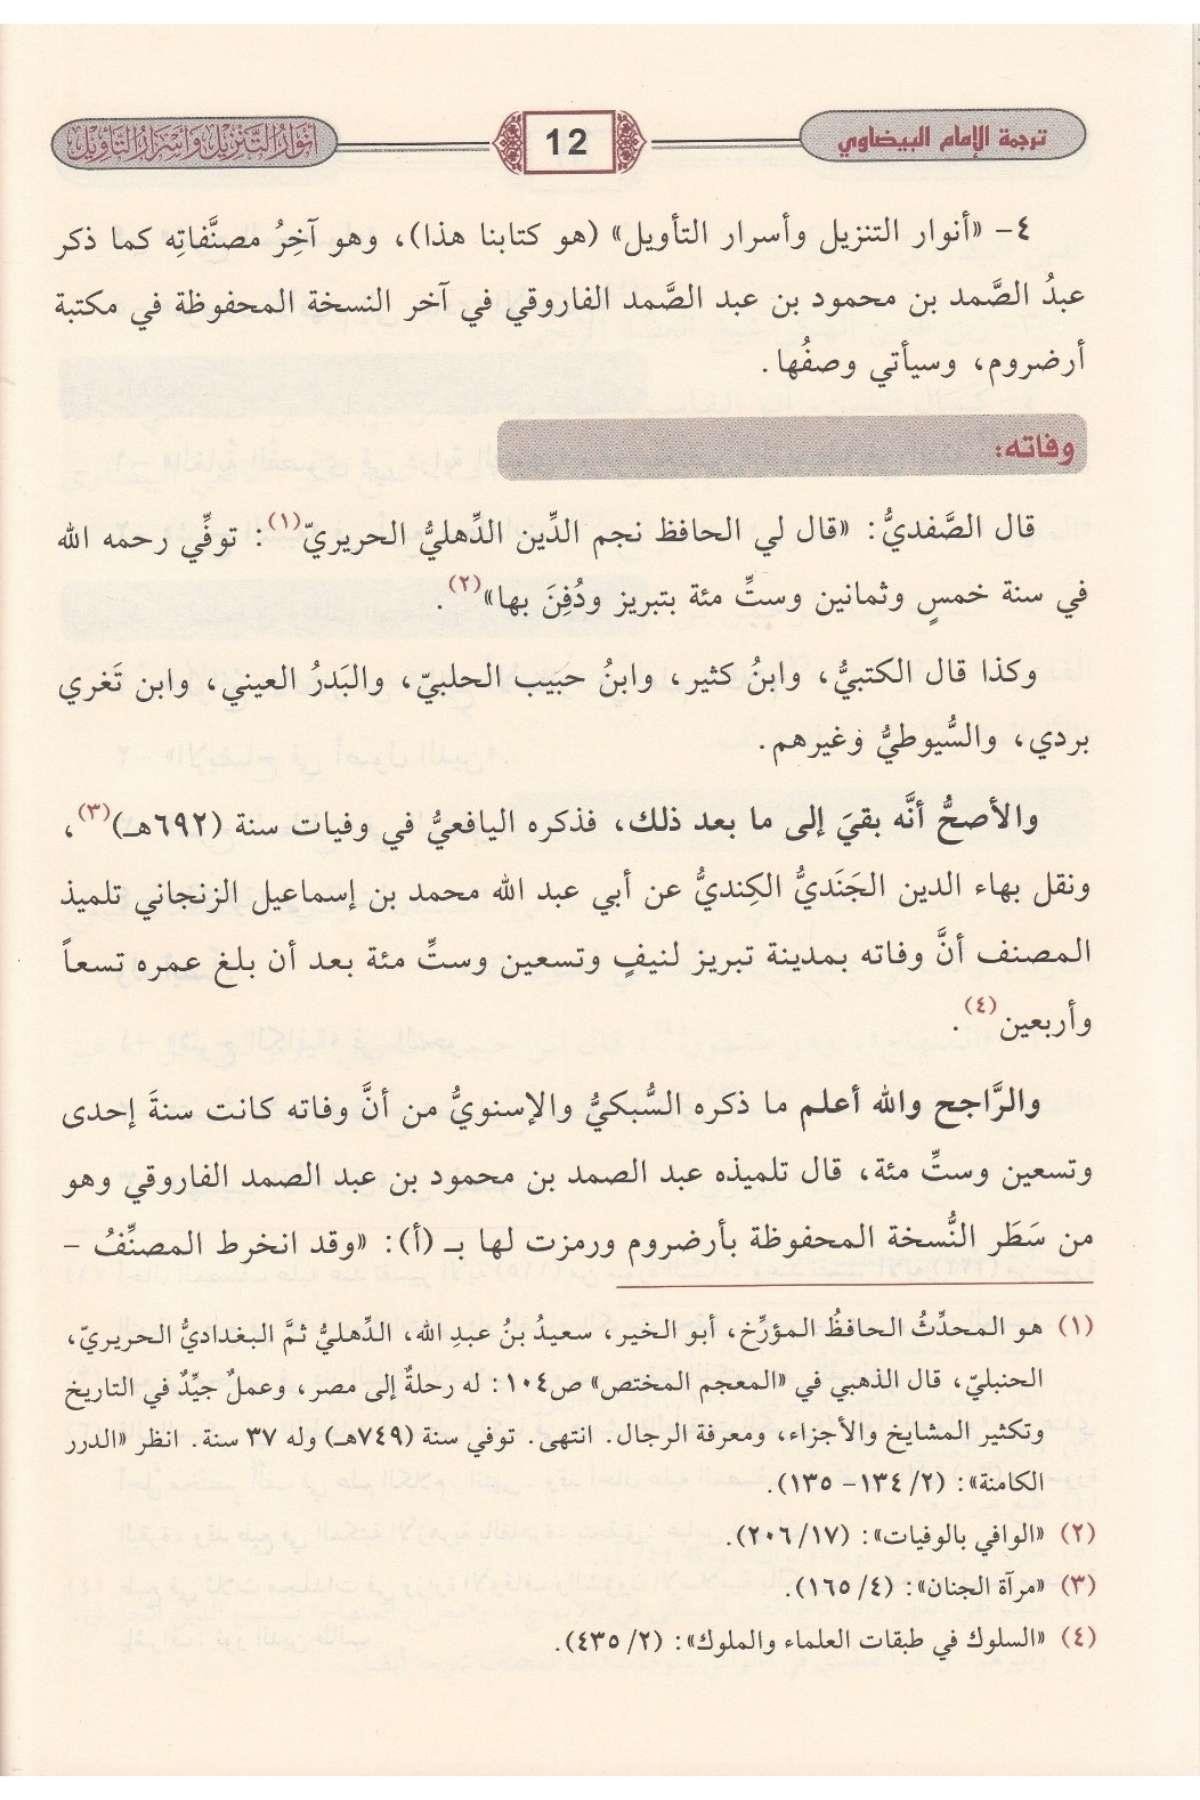 ترجمة الإمام البيضاوي
12
أنوار التنزيل وأسرار التأويل
٤- «أنوار التنزيل وأسرار التأويل» (هو كتابنا هذا)، وهو آخِرُ مصنَّفاتِه كما ذكر
عبدُ الصَّمد بن محمود بن عبد الصَّمد الفاروقي في آخر النسخة المحفوظة في مكتبة
أرضروم، وسيأتي وصفُها.
وفاته:
قال الصَّفديُّ: «قال لي الحافظ نجم الدِّين الدِّهليُّ الحريريّ(١): توفِّي رحمه الله
في سنة خمسٍ وثمانين وستِّ مئة بتبريز ودُفِنَ بها»(٢).
وكذا قال الكتبيُّ، وابنُ كثير، وابنُ حبَيب الحلبيّ، والبَدرُ العيني، وابن تَغري
بردي، والسُّيوطيُّ وغيرهم.
والأصحُّ أنَّه بقيَ إلى ما بعد ذلك، فذكره اليافعيُّ في وفيات سنة (٦٩٢هـ)(٣)،
ونقل بهاء الدين الجَنَديُّ الكِنديُّ عن أبي عبد الله محمد بن إسماعيل الزنجاني تلميذ
المصنف أنَّ وفاته بمدينة تبريز لنيفٍ وتسعين وستِّ مئة بعد أن بلغ عمره تسعاً
وأربعين(٤).
والرَّاجح والله أعلم ما ذكره السُّبكيُّ والإسنويُّ من أنَّ وفاته كانت سنةَ إحدى
وتسعين وستِّ مئة، قال تلميذه عبد الصمد بن محمود بن عبد الصمد الفاروقي وهو
من سَطَر النُّسخة المحفوظة بأرضروم ورمزت لها بـ (أ): «وقد انخرط المصنِّفُ -
(١) هو المحدِّثُ الحافظُ المؤرِّخ، أبو الخير، سعيدُ بنُ عبدِ الله، الدِّهليُّ ثمَّ البغداديُّ الحريريّ،
الحنبليّ، قال الذهبي في «المعجم المختص» ص١٠٤: له رحلةٌ إلى مصر، وعملٌ جيِّدٌ في التاريخ
وتكثير المشايخ والأجزاء، ومعرفة الرجال. انتهى. توفي سنة (٧٤٩هـ) وله ٣٧ سنة. انظر «الدرر
الكامنة»: (٢/ ١٣٤- ١٣٥).
(٢) «الوافي بالوفيات»: (١٧/ ٢٠٦).
(٣) «مرآة الجنان»: (٤/ ١٦٥).
(٤) «السلوك في طبقات العلماء والملوك»: (٢/ ٤٣٥).